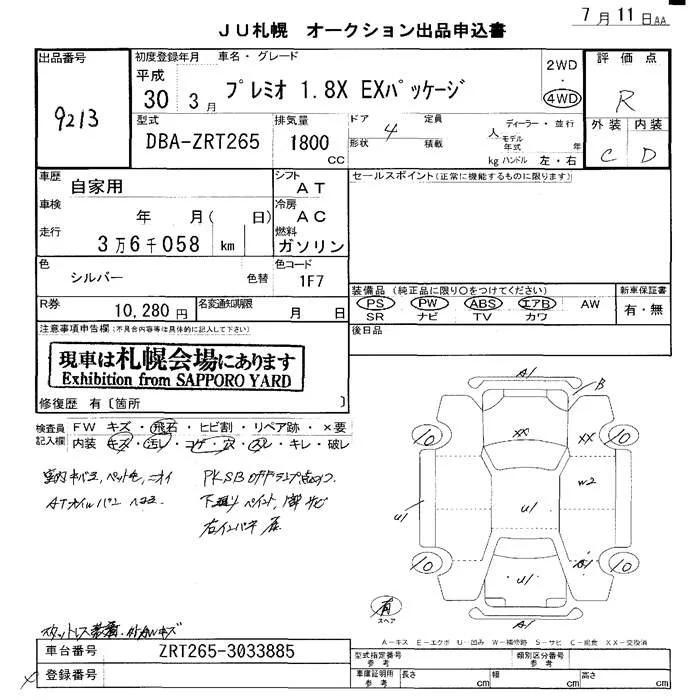 7月11日AA
JU札幌 オークション出品申込書
出品番号
9213
初度登録年月
平成
30 3月
車名・グレード
プレミオ 1.8X EXパッケージ
2WD
・
4WD
評価点
R
外装 内装
C D
型式
DBA-ZRT265
排気量
1800
CC
ドア 4 定員 人
形状 積載 kg
ディーラー・並行
モデル年式 年
ハンドル 左・右
車歴
自家用
シフト
AT
セールスポイント(正常に機能するものに限ります)
車検
年 月( 日)
冷房
AC
走行
3万6千058 km
燃料
ガソリン
色
シルバー
色替
色コード
1F7
装備品(純正品に限り○をつけてください)
PS PW ABS エアB AW
SR ナビ TV カワ
新車保証書
有・無
R券
10,280円
名変通知期限
月 日
後日品
注意事項申告欄(不具合内容等は具体的に記入して下さい)
現車は札幌会場にあります
Exhibition from SAPPORO YARD
修復歴 有〔箇所 〕
検査員記入欄
FW キズ・飛石・ヒビ割・リペア跡・×要
内装 キズ・汚レ・コゲ・穴・スレ・キレ・破レ
ATオイルパン
下廻りペイント
A1
B
10
XX
XX
10
W2
U1
U1
10
A1
10
U1
A1
有
スペア
A-キズ E-エクボ U-凹み W-補修跡 S-サビ C-腐食 XX-交換済
車台番号
ZRT265-3033885
型式指定番号
参考
類別区分番号
参考
登録番号
車庫証明用
参考
長さ cm
幅 cm
高さ cm